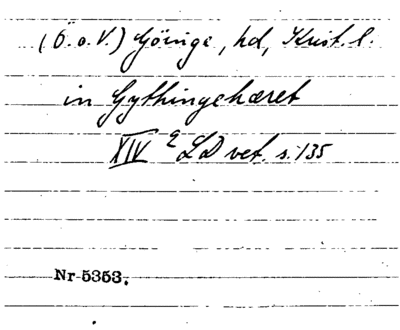 (Ö.o.V.) Göinge, hd, Krist. l.
in Gythingehæret
XIV e LD vet. s. 135
Nr 5353.